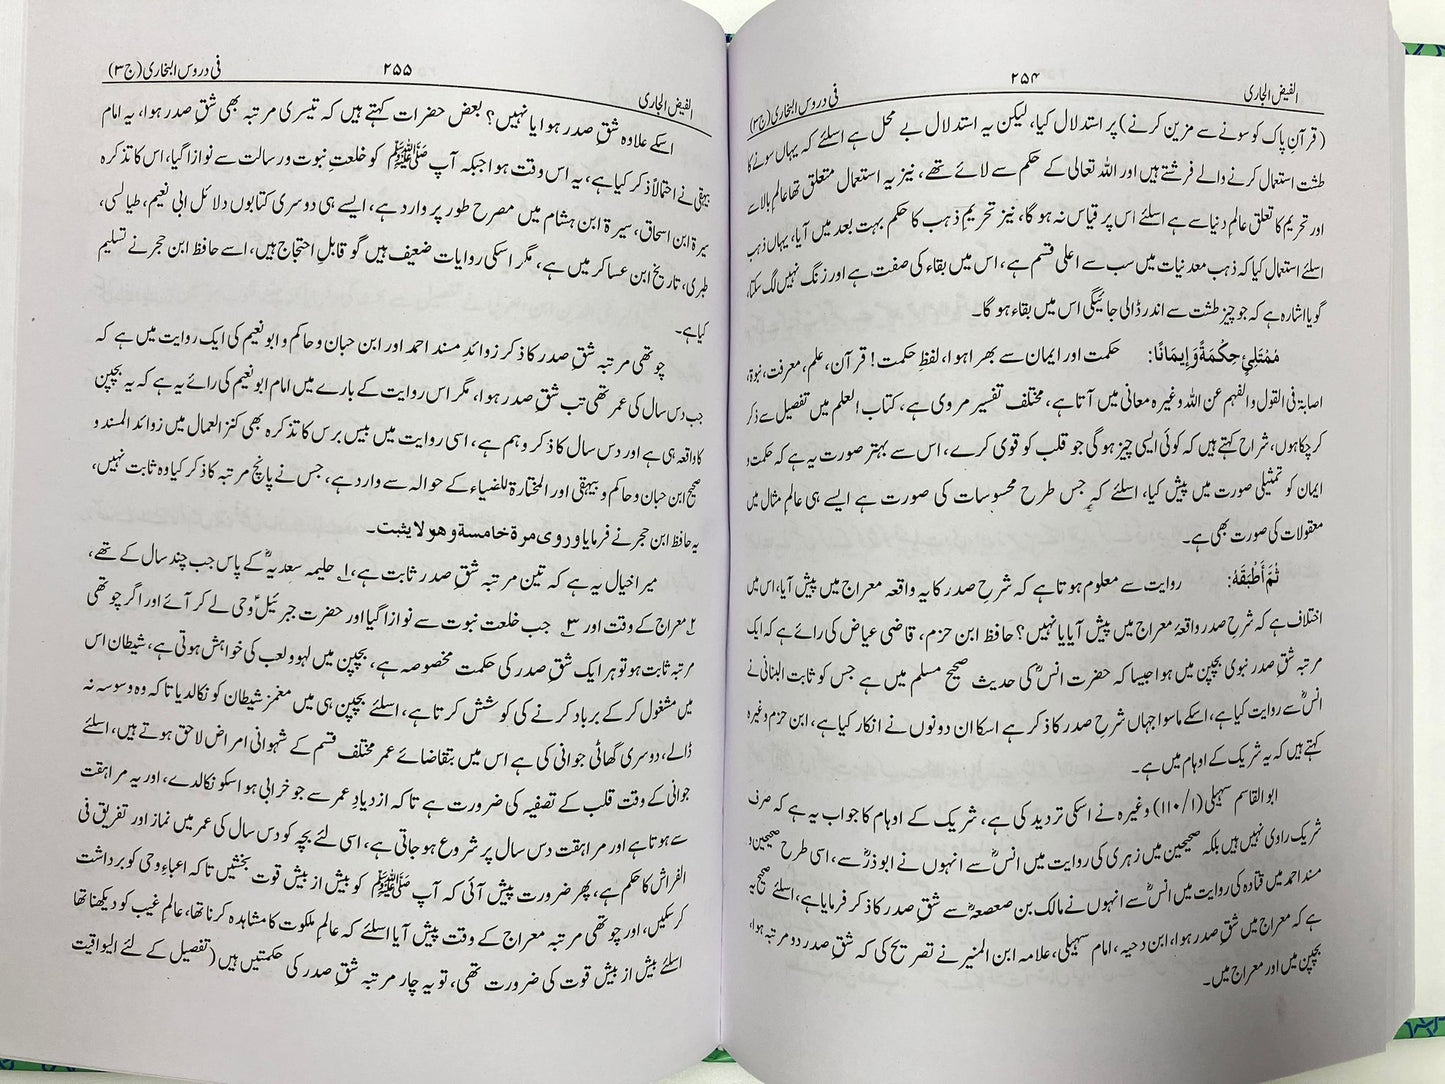 الفیض الجاری ۲۵۴ فی دروس البخاری (ج۳)
(قرآنِ پاک کو سونے سے مزین کرنے) پر استدلال کیا، لیکن یہ استدلال بے محل ہے اسلئے کہ یہاں سونے کا
طشت استعمال کرنے والے فرشتے ہیں اور اللہ تعالی کے حکم سے لائے تھے، نیز یہ استعمال متعلق تھا عالمِ بالا سے
اور تحریم کا تعلق عالمِ دنیا سے ہے اسلئے اس پر قیاس نہ ہوگا، نیز تحریمِ ذہب کا حکم بہت بعد میں آیا، یہاں ذہب
اسلئے استعمال کیا کہ ذہب معدنیات میں سب سے اعلی قسم ہے، اس میں بقاء کی صفت ہے اور زنگ نہیں لگ سکتا،
گویا اشارہ ہے کہ جو چیز طشت سے اندر ڈالی جائیگی اس میں بقاء ہوگا۔
مُمْتَلِئٍ حِکْمَةً وَّإِیمَانًا: حکمت اور ایمان سے بھرا ہوا، لفظِ حکمت! قرآن، علم، معرفت، نبوۃ،
اصابۃ فی القول والفہم عن اللہ وغیرہ معانی میں آتا ہے، مختلف تفسیر مروی ہے، کتاب العلم میں تفصیل سے ذکر
کر چکا ہوں، شراح کہتے ہیں کہ کوئی ایسی چیز ہوگی جو قلب کو قوی کرے، اس سے بہتر صورت یہ ہے کہ حکمت و
ایمان کو تمثیلی صورت میں پیش کیا، اسلئے کہ جس طرح محسوسات کی صورت ہے ایسے ہی عالمِ مثال میں
معقولات کی صورت بھی ہے۔
ثُمَّ أَطْبَقَهُ: روایت سے معلوم ہوتا ہے کہ شرحِ صدر کا یہ واقعہ معراج میں پیش آیا، اس میں
اختلاف ہے کہ شرحِ صدر واقعۂ معراج میں پیش آیا یا نہیں؟ حافظ ابن حزم، قاضی عیاض کی رائے ہے کہ ایک
مرتبہ شقِ صدر نبوی بچپن میں ہوا جیسا کہ حضرت انسؓ کی حدیث صحیح مسلم میں ہے جس کو ثابت البنانی نے
انسؓ سے روایت کیا ہے، اسکے ماسوا جہاں شرحِ صدر کا ذکر ہے اسکا ان دونوں نے انکار کیا ہے، ابن حزم وغیرہ
کہتے ہیں کہ یہ شریک کے اوہام میں ہے۔
ابوالقاسم سہیلی (۱/۱۱۰) وغیرہ نے اسکی تردید کی ہے، شریک کے اوہام کا جواب یہ ہے کہ صرف
شریک راوی نہیں ہیں بلکہ صحیحین میں زہری کی روایت میں انسؓ سے انہوں نے ابوذرؓ سے، اسی طرح صحیحین و
مسند احمد میں قتادہ کی روایت میں انسؓ سے انہوں نے مالک بن صعصعہؓ سے شقِ صدر کا ذکر فرمایا ہے، اسلئے صحیح یہ
ہے کہ معراج میں شقِ صدر ہوا، ابن دحیہ، امام سہیلی، علامہ ابن المنیر نے تصریح کی کہ شقِ صدر دو مرتبہ ہوا،
بچپن میں اور معراج میں۔
الفیض الجاری ۲۵۵ فی دروس البخاری (ج۳)
اسکے علاوہ شقِ صدر ہوا یا نہیں؟ بعض حضرات کہتے ہیں کہ تیسری مرتبہ بھی شقِ صدر ہوا، یہ امام
بیہقی نے احتمالاً ذکر کیا ہے، یہ اس وقت ہوا جبکہ آپ ﷺ کو خلعتِ نبوت ورسالت سے نوازا گیا، اس کا تذکرہ
سیرۃ ابن اسحاق، سیرۃ ابن ہشام میں مصرح طور پر وارد ہے، ایسے ہی دوسری کتابوں دلائل ابی نعیم، طیالسی،
طبری، تاریخ ابن عساکر میں ہے، مگر اسکی روایات ضعیف ہیں گو قابلِ احتجاج ہیں، اسے حافظ ابن حجر نے تسلیم
کیا ہے۔
چوتھی مرتبہ شقِ صدر کا ذکر زوائدِ مسند احمد اور ابن حبان وحاکم وابونعیم کی ایک روایت میں ہے کہ
جب دس سال کی عمر تھی تب شقِ صدر ہوا، مگر اس روایت کے بارے میں امام ابونعیم کی رائے یہ ہے کہ یہ بچپن
کا واقعہ ہی ہے اور دس سال کا ذکر وہم ہے، اسی روایت میں بیس برس کا تذکرہ بھی کنز العمال میں زوائد المسند و
صحیح ابن حبان وحاکم وبیہقی اور المختارۃ للضیاء کے حوالہ سے وارد ہے، جس نے پانچ مرتبہ کا ذکر کیا وہ ثابت نہیں،
یہ حافظ ابن حجر نے فرمایا وروی مرة خامسة وهو لا یثبت۔
میرا خیال یہ ہے کہ تین مرتبہ شقِ صدر ثابت ہے، ۱ حلیمہ سعدیہؓ کے پاس جب چند سال کے تھے،
۲ معراج کے وقت اور ۳ جب خلعت نبوت سے نوازا گیا اور حضرت جبرئیلؑ وحی لے کر آئے اور اگر چوتھی
مرتبہ ثابت ہو تو ہر ایک شقِ صدر کی حکمت مخصوصہ ہے، بچپن میں لہو ولعب کی خواہش ہوتی ہے، شیطان اس
میں مشغول کر کے برباد کرنے کی کوشش کرتا ہے، اسلئے بچپن ہی میں مغمز شیطان کو نکالدیا تاکہ وہ وسوسہ نہ
ڈالے، دوسری گھاٹی جوانی کی ہے اس میں بتقاضائے عمر مختلف قسم کے شہوانی امراض لاحق ہوتے ہیں، اسلئے
جوانی کے وقت قلب کے تصفیہ کی ضرورت ہے تاکہ ازدیادِ عمر سے جو خرابی ہو اسکو نکالدے، اور یہ مراہقت
سے ہوتا ہے اور مراہقت دس سال پر شروع ہوجاتی ہے، اسی لئے بچہ کو دس سال کی عمر میں نماز اور تفریق فی
الفراش کا حکم ہے، پھر ضرورت پیش آئی کہ آپ ﷺ کو بیش از بیش قوت بخشیں تاکہ اعباءِ وحی کو برداشت
کرسکیں، اور چوتھی مرتبہ معراج کے وقت پیش آیا اسلئے کہ عالمِ ملکوت کا مشاہدہ کرنا تھا، عالمِ غیب کو دیکھنا تھا
اسلئے بیش از بیش قوت کی ضرورت تھی، تو یہ چار مرتبہ شقِ صدر کی حکمتیں ہیں (تفصیل کے لئے الیواقیت